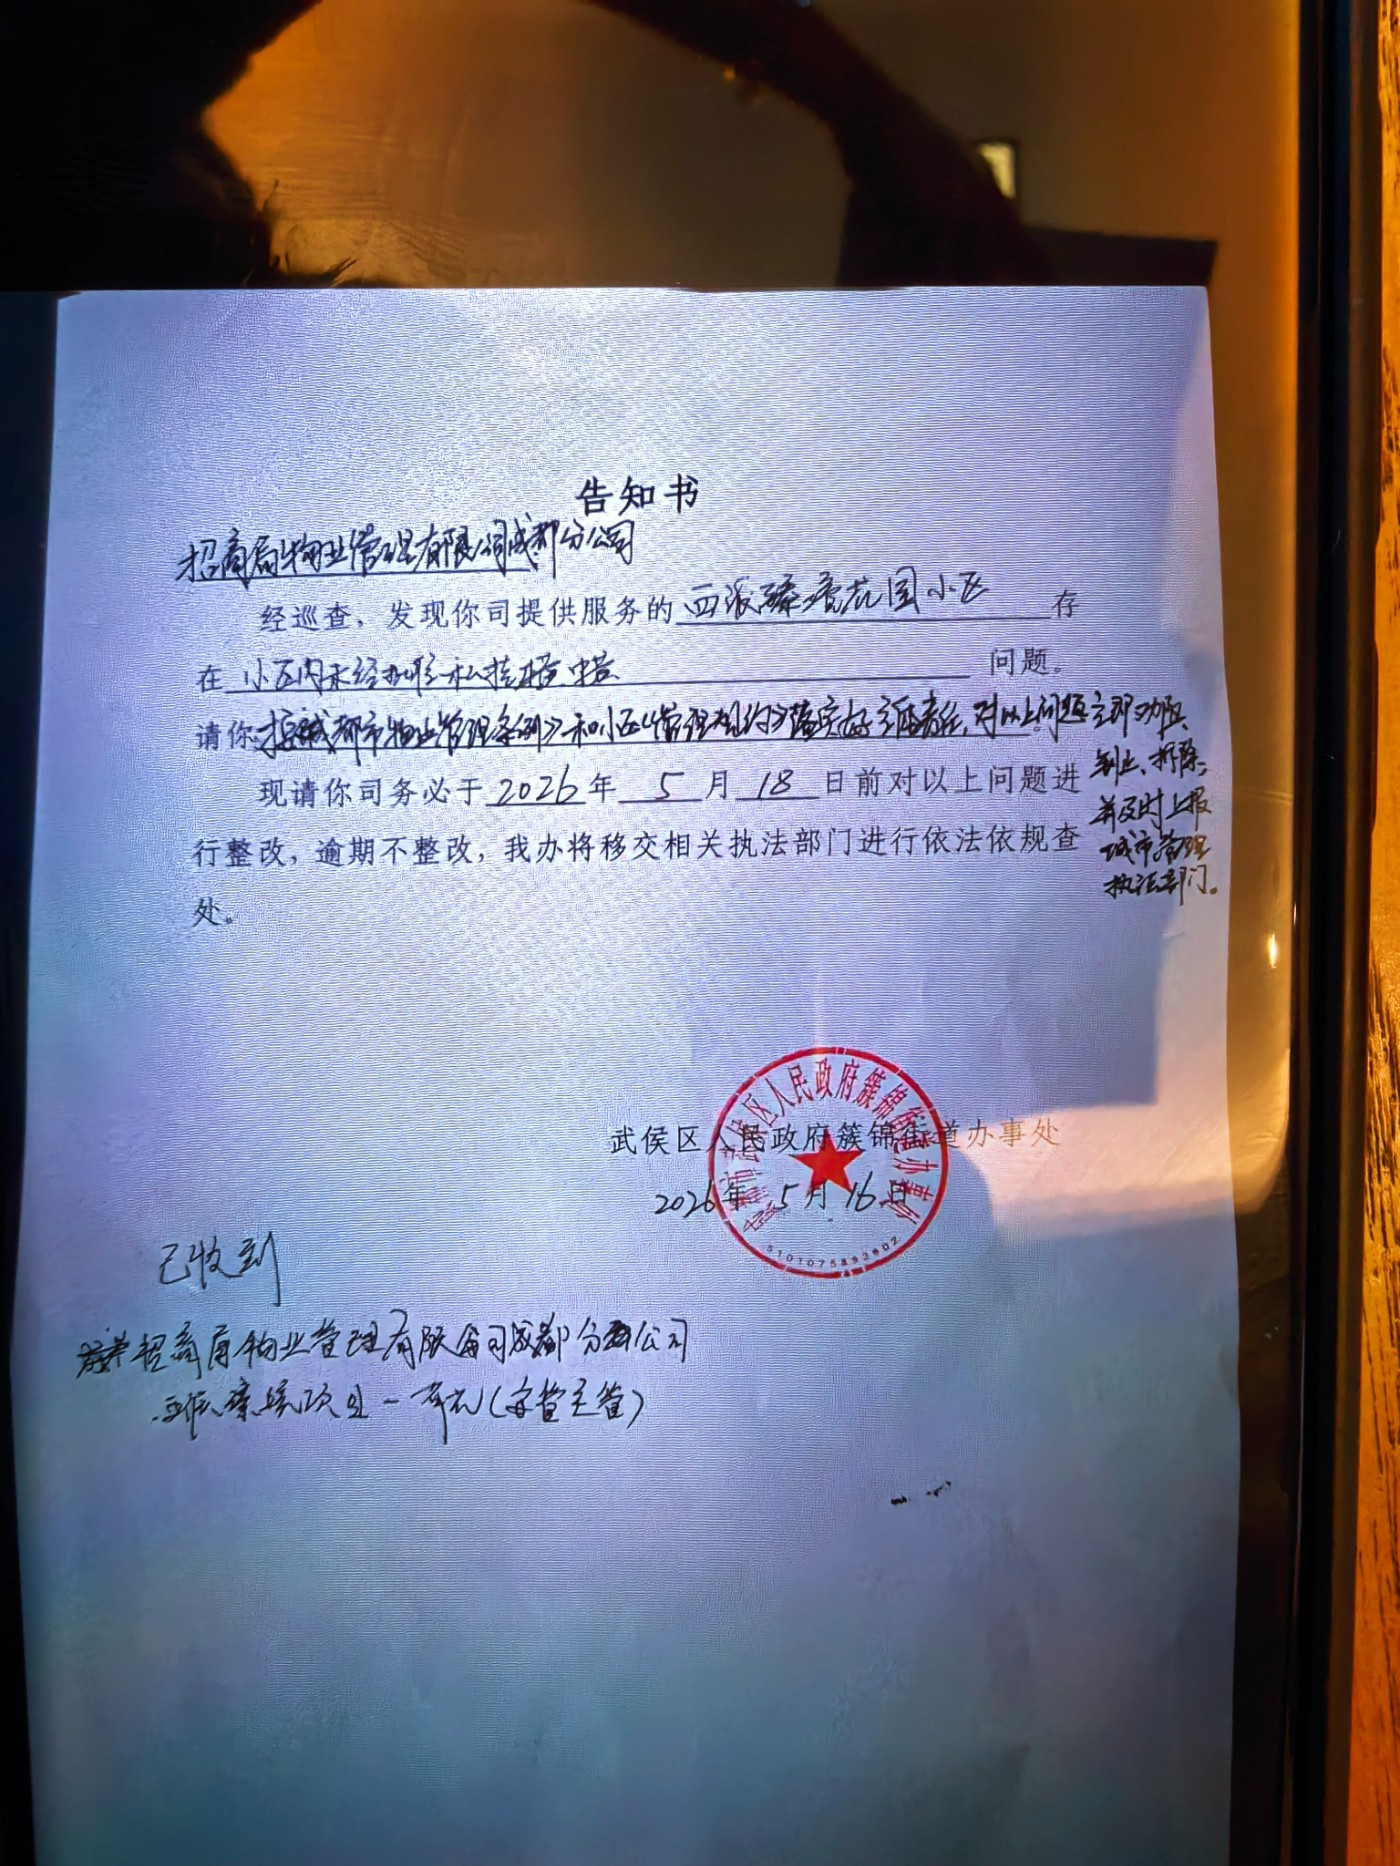 告知书
招商局物业管理有限公司成都分公司
经巡查，发现你司提供服务的 花园小区 存
在 小区内未经 私挂横 问题。
请你按《成都市物业管理条例》和小区《管理规约》落实好主体责任，对以上问题立即劝阻、
制止、拆除，
并及时上报
城市管理
执法部门。
现请你司务必于2026年5月18日前对以上问题进
行整改，逾期不整改，我办将移交相关执法部门进行依法依规查
处。
武侯区人民政府簇锦街道办事处
2026年5月16日
成都市武侯区人民政府簇锦街道办事处
5101075892902
已收到
招商局物业管理有限公司成都分公司
项目 (安管主管)